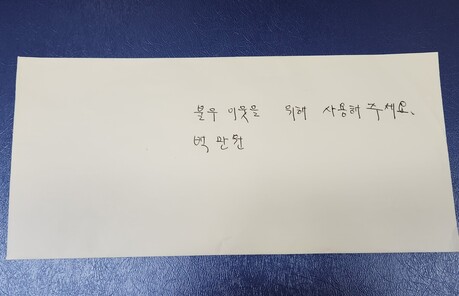 불우 이웃을 위해 사용해 주세요.
백만원